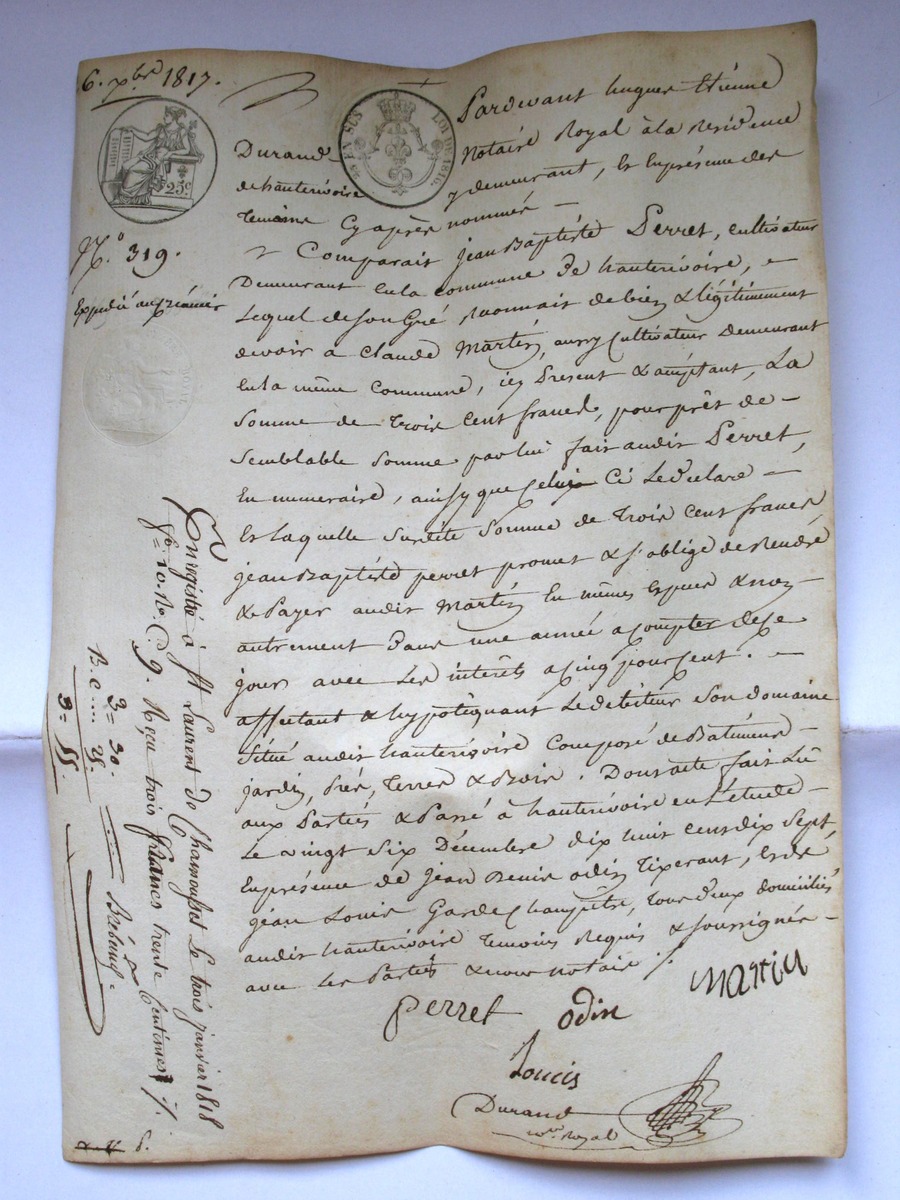 6. xbre 1817.
EN SUS
LOI DE 1816.
25c
No 319.
Expédié au créancier
Pardevant hugues Etienne
Durand Notaire Royal à la Residence
de hauterivoire y demeurant, Et Enprésence des
temoins Cyaprès nommés —
Comparait jean Baptiste Perret, cultivateur
Demeurant En la commune De hauterivoire, —
Lequel de son Gré Reconnait devoir bien & légitimement
devoir à Claude Martin, aussy Cultivateur Demeurant
En la même Commune, icy Present & acceptant, La
Somme de trois Cent francs, pour prêt de —
Semblable Somme par lui fait audit Perret,
En numeraire, ainsy que Celui Ci Le déclare —
Et Laquelle Susdite Somme de trois Cent francs
jean Baptiste perret promet & s'oblige de Rendre
& Payer audit Martin En mêmes Especes & non —
autrement Dans une année a Compter de Ce
jour avec Les intérêts a Cinq pour Cent. —
affectant & hypotéquant Le debiteur Son domaine
Situé audit hauterivoire Composé de Batiments —
jardin, Prés, Terres & Bois. Dont acte fait Lû
aux Parties & Passé à hauterivoire en L'étude —
Le vingt Six Décembre dix huit Cent dix Sept,
Enprésence de jean Denis odin Tixerant, Et de
jean Louis Garde Champêtre, tous deux domiciliés
audit hauterivoire temoins Requis & Soussignés —
avec Les Parties & nous notaire ./.
Perret odin Martin
Louis
Durand
nre Royal
Enregistré à St Laurent de Chamousset Le trois janvier 1818
fo 10. Ro C. 9. Reçu trois francs trente Centimes ./.
3 = 30.
B. C .... 25.
3 = 55.